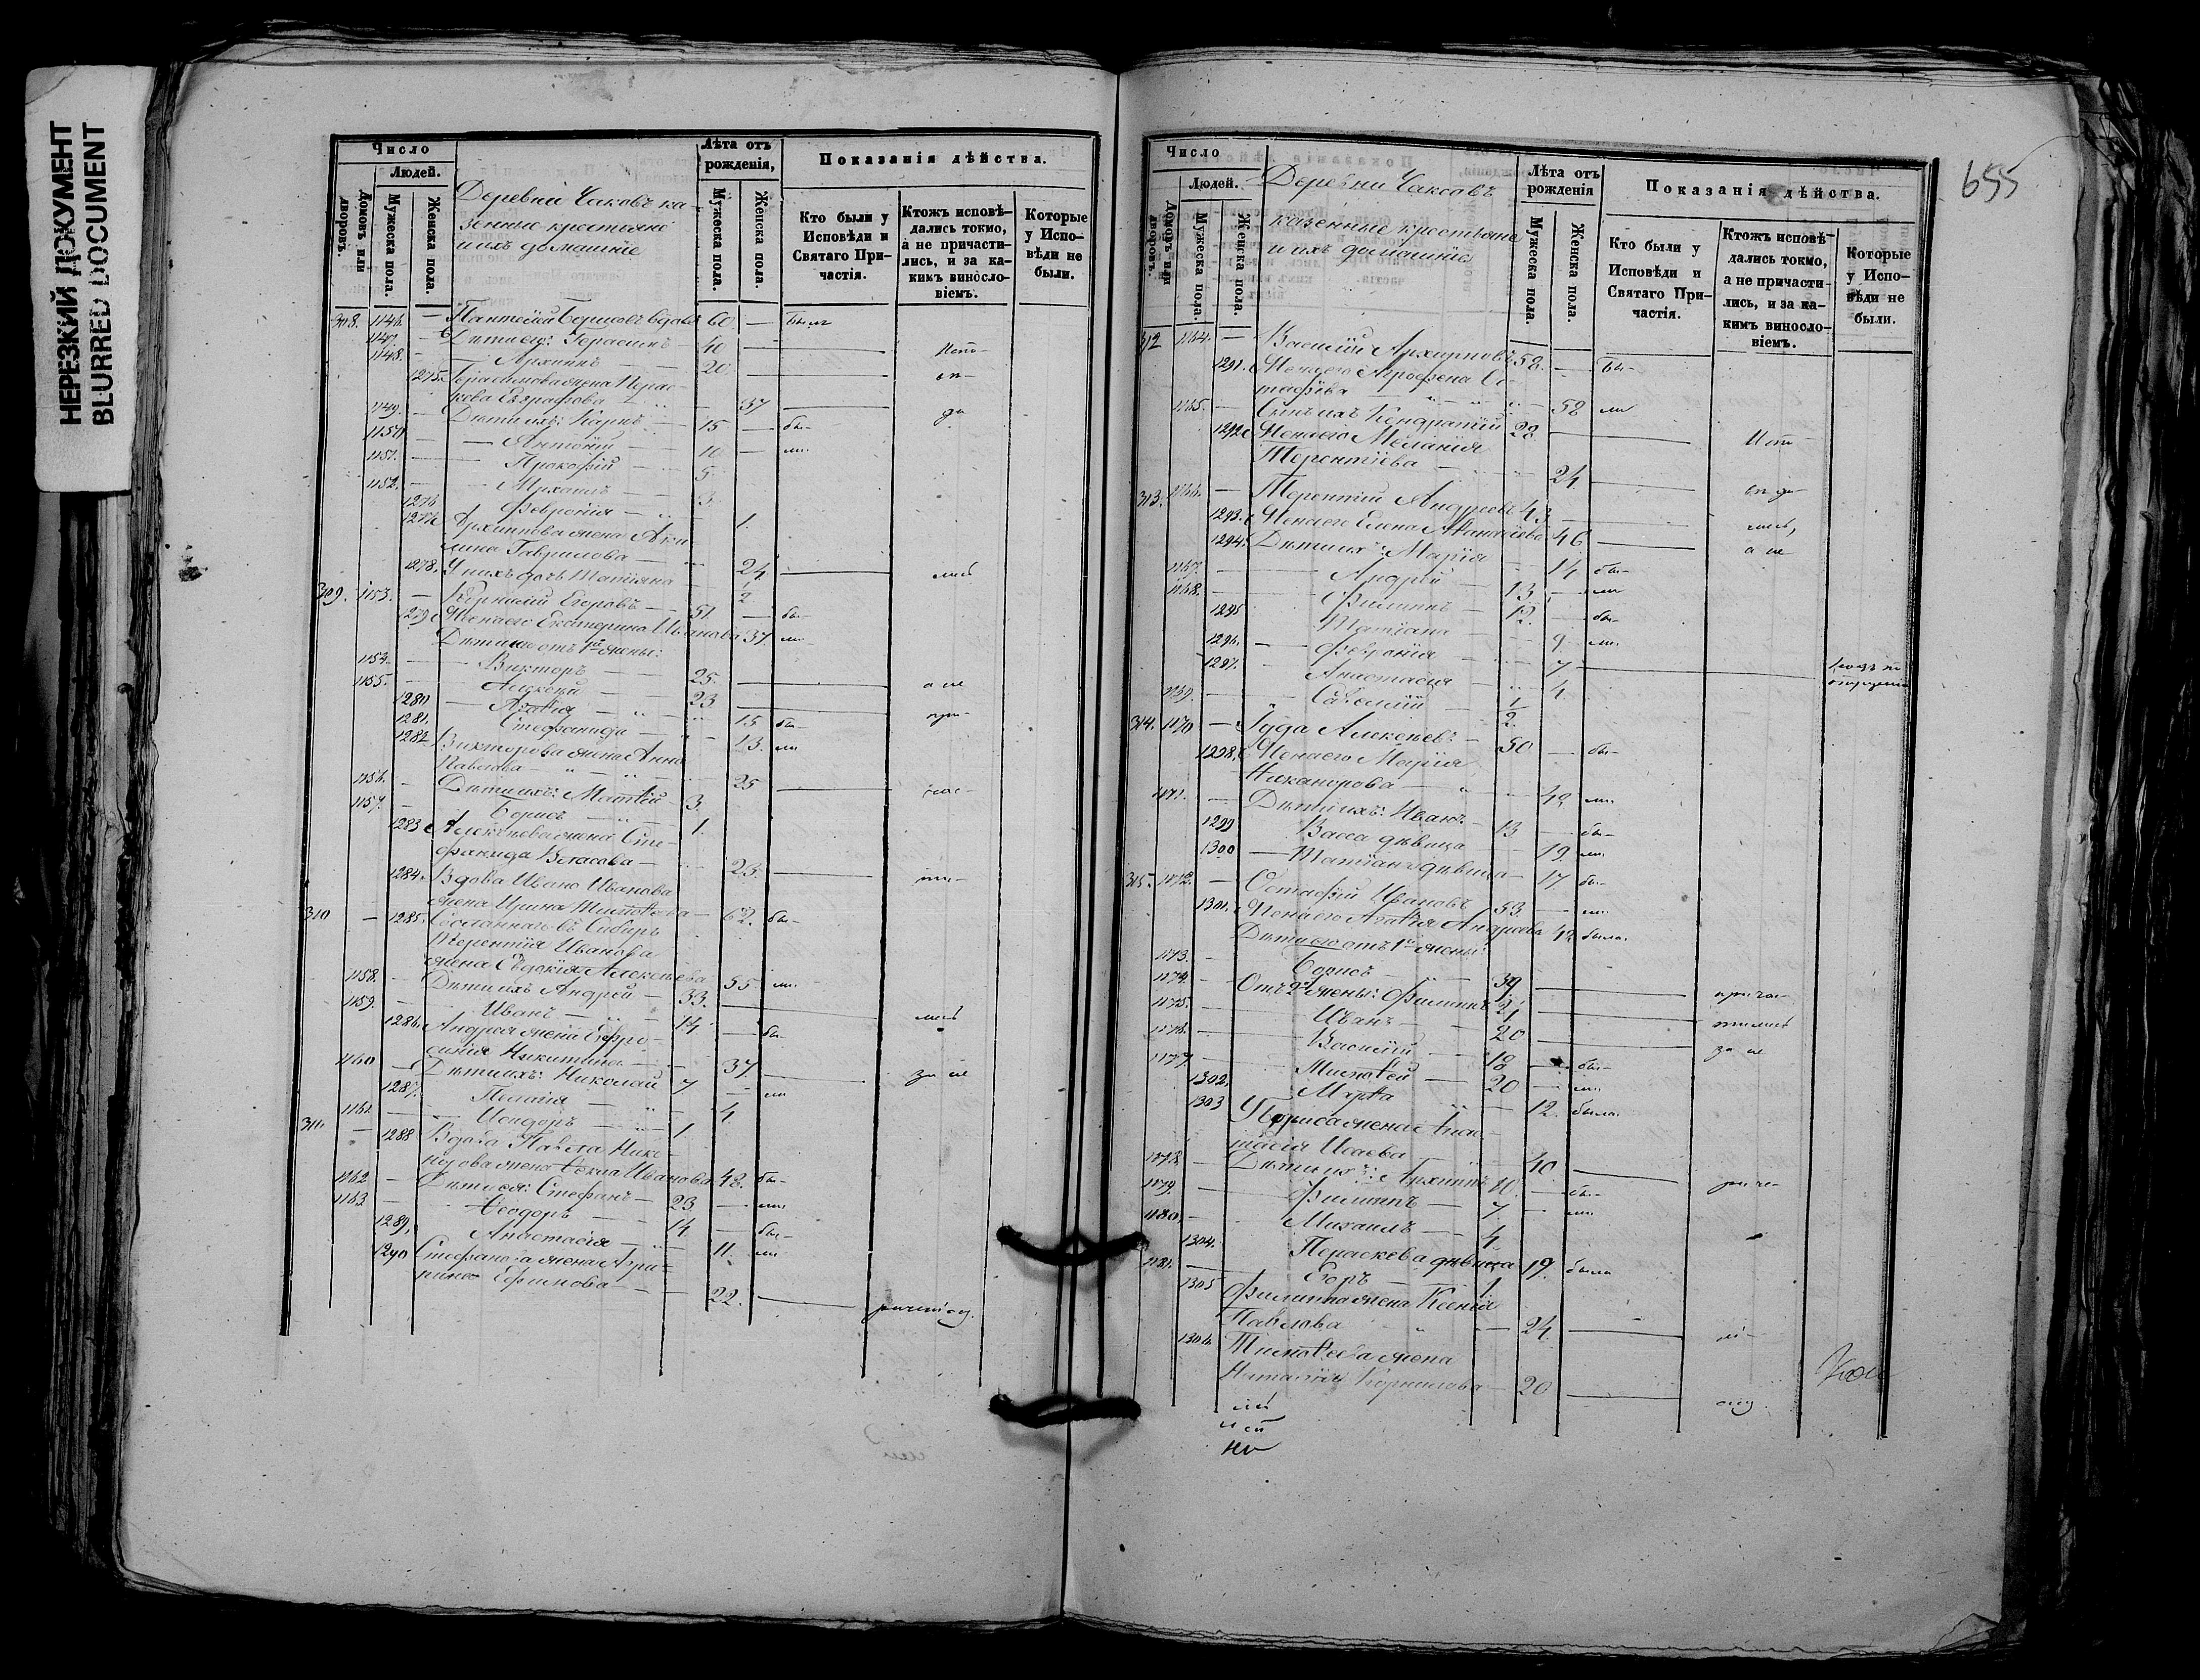 НЕРЕЗКИЙ ДОКУМЕНТ
BLURRED DOCUMENT
Число
Людей.
Домовъ или дворовъ.
Мужеска пола.
Женска пола.
Деревни Чаковъ ка-
зенные крестьяне
и ихъ домашніе
Лѣта отъ рожденія,
Мужеска пола.
Женска пола.
Показанія дѣйства.
Кто были у Исповѣди и Святаго При-частія.
Ктожъ исповѣ-дались токмо, а не причасти-лись, и за ка-кимъ винослo-віемъ.
Которые у Испо-вѣди не были.
308. 1146. — Пантелей Борисовъ вдовъ 60 — былъ
1147. — Дѣти его: Герасимъ — 40 — Испо-
1148. — Архипъ — 20 — вѣ-
1275. Герасимова жена Парас-
кева Евграфова — 37 — да
1149. — Дѣти ихъ: Карпъ — 15 — бы-
1150 — Антоній — 10 — ли
1151. — Прокофій — 5.
1152. — Михаилъ — 3.
1276 Февронія — 1.
1277 Архипова жена Аки-
лина Гаврилова — 24 — лись
1278. У нихъ дочь Татіана 1/2
309. 1153. — Корнилій Егоровъ — 51 — бы-
1279 Жена его Екатерина Иванова 37 ли
Дѣти его отъ 1й жены:
1154 — Викторъ — 25.
1155. — Алексѣй — 23 — а не
1280 — Агаѳія — 15 бы- при-
1281. Стефанида — 13. ли
1282 Викторова жена Анна
Павлова — 25 — час-
1156. — Дѣти ихъ: Матѳей — 3.
1157. — Борисъ — 1.
1283 Алексѣева жена Сте-
фанида Власова — 23 — ти-
1284. Вдова Ивана Иванова
жена Ирина Тимоѳеева — 62. бы-
310 — 1285. Сосланнаго въ Сибирь
Терентія Иванова
жена Евдокія Алексѣева 55 ли
1158. — Дѣти ихъ Андрей — 33.
1159. — Иванъ — 14 — бы- лись
1286. Андрея жена Евфро-
синія Никитина — 37 — за не
1160 — Дѣти ихъ: Николай 7 — ли
1287. Пелагія — 4.
1161. — Исидоръ — 1.
311. — 1288 Вдова Павла Нико-
норова жена Ѳекла Иванова 48. бы-
1162 — Дѣти ея: Стефанъ — 23 — ли
1163 — Ѳеодоръ — 14 — бы-
1289. Анастасія — 11. ли
1290 Стефанова жена Ага-
рина Ефимова — 22.
655
Число
Людей.
Домовъ или дворовъ.
Мужеска пола.
Женска пола.
Деревни Чаковъ
казенные крестьяне
и ихъ домашніе
Лѣта отъ рожденія
Мужеска пола.
Женска пола.
Показанія дѣйства.
Кто были у Исповѣди и Святаго При-частія.
Ктожъ исповѣ-дались токмо, а не причасти-лись, и за ка-кимъ винослo-віемъ.
Которые у Испо-вѣди не были.
312 1164. — Василій Архиповъ 58. — бы-
1291. Жена его Агрофена Ос-
тафіева — 58 ли
1165. — Сынъ ихъ Кондратій 28. — Испо
1292 Жена его Меланія
Терентіева — 24 — вѣда-
313. 1166. — Терентій Андреевъ 43 — лись,
1293. Жена его Елена 46 — а не
1294. Дѣти ихъ: Марія — 14 бы-
1167. — Андрей — 13 — ли
1168. — Филиппъ — 12. — бы-
1295 Татіана — 9 ли
1296. Февронія — 7
1297. Анастасія — 4
1169. — Савелій — 1/2
314. 1170 — Іуда Алексѣевъ — 50 — бы-
1298. Жена его Марія
Никанорова — 48 ли
1171. — Дѣти ихъ: Иванъ — 13 — бы-
1299 Васса дѣвица — 19 ли
1300 — Татіана дѣвица — 17 бы-
315. 1172. — Остафій Ивановъ 53 — ли
1301. Жена его Агаѳія Андреева 42 была.
Дѣти его отъ 1й жены:
1173. — Борисъ — 39 — прича-
1174. — Отъ 2й жены: Филиппъ 21 — тились
1175. — Иванъ — 20 — за не
1176. — Василій — 18 — бы-
1177. — Тимоѳей — 20 — ли
1302. Марѳа — 12. была
1303 У Бориса жена Анас-
тасія Исаева — 40
1178. — Дѣти ихъ: Архипъ 10. — бы-
1179. — Филиппъ — 7 — ли
1180. — Михаилъ — 4.
1304. Параскева дѣвица 19. была
1181. — Егоръ — 1
1305 Филиппа жена Ксенія
Павлова — 24
1306. Тимоѳеева жена
Наталія Корнилова — 20